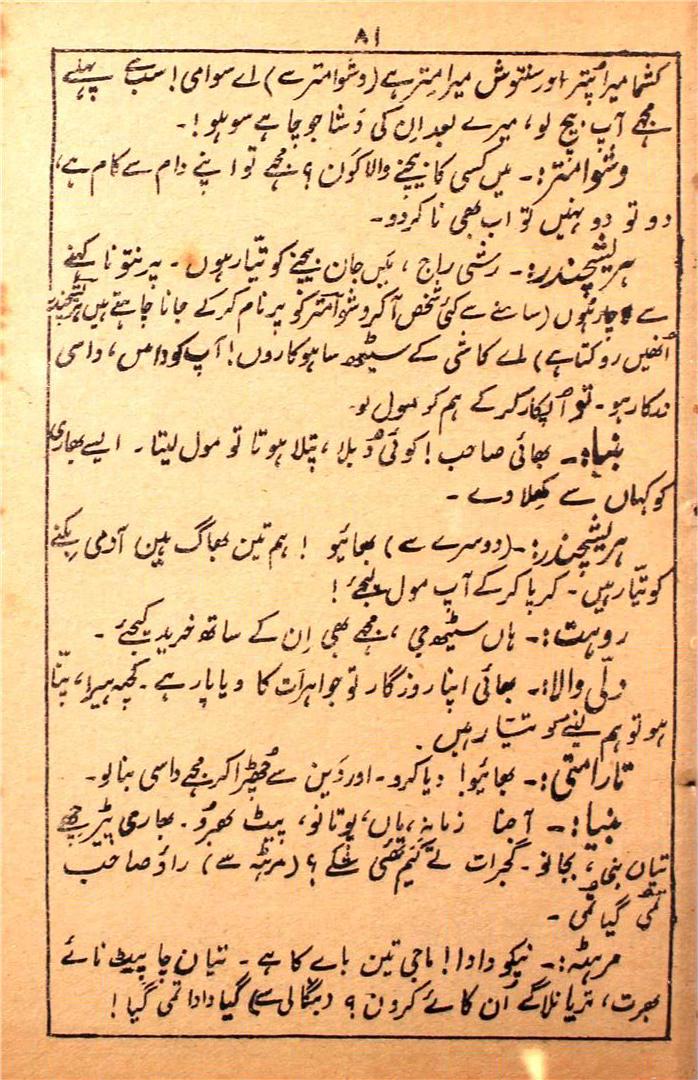 ۸۱
کشما میرا پُتر اور سنتوش میرا مِتر ہے (وشوامتر سے) اے سوامی! سب سے پہلے
مجھے آپ بیچ لو، میرے بعد اِن کی دَشا جو چاہے سو ہلو!۔
وشوامتر:۔ میں کسی کا بیچنے والا کَون؟ مجھے تو اپنے دام سے کام ہے،
دو تو دو نہیں تو اب بھی نا کر دو۔
ہریشچندر:۔ رشی راج، مَیں جان بیچنے کو تیّار ہوں۔ پرنتو نا کہنے
سے لاچار ہُوں (سامنے سے کئی شخص آکر وشوامتر کو پرنام کرکے جانا چاہتے ہیں ہریشچندر
اُنھیں روکتا ہے) اے کاشی کے سیٹھ ساہوکاروں! آپ کو داس، داسی
درکار ہو۔ تو اُپکار کرکے ہم کو مول لو۔
بنیا:۔ بھائی صاحب! کوئی دُبلا، پتلا ہوتا تو مول لیتا۔ ایسے بھاری
کو کہاں سے کھِلا دے۔
ہریشچندر:۔ (دوسرے سے) بھائیو! ہم تین بھاگ ہین آدمی بِکنے
کو تیّار ہیں۔ کرپا کرکے آپ مول لیجئے!
روہت:۔ ہاں سیٹھ جی، مجھے بھی اِن کے ساتھ خرید کیجئے۔
دلّی والا:۔ بھائی اپنا روزگار تو جواہرات کا ویاپار ہے۔ کچھ ہیرا، پنّا
ہو تو ہم لینے کو تیّار ہیں۔
تارامتی:۔ بھائیو! دیا کرو۔ اور دَین سے چُھڑا کر مجھے داسی بنا لو۔
بنیا:۔ آجنا زمانہ، ماں، پوتانو، پیٹ بھرو۔ بھاری پڑ چھے
تیاں بنی، بجانو۔ گجرات لے کیم تھئی شکے؟ (مرہٹہ سے) راؤ صاحب
تمی گیا تُمی۔
مرہٹہ:۔ نیکو دادا! ماجی تین بائے کا ہے۔ تیان چا پیٹ نائے
بھرت، تریا نلاگے اُن کائے کرون؟ (بنگالی سے) گیا دادا تمی گیا!